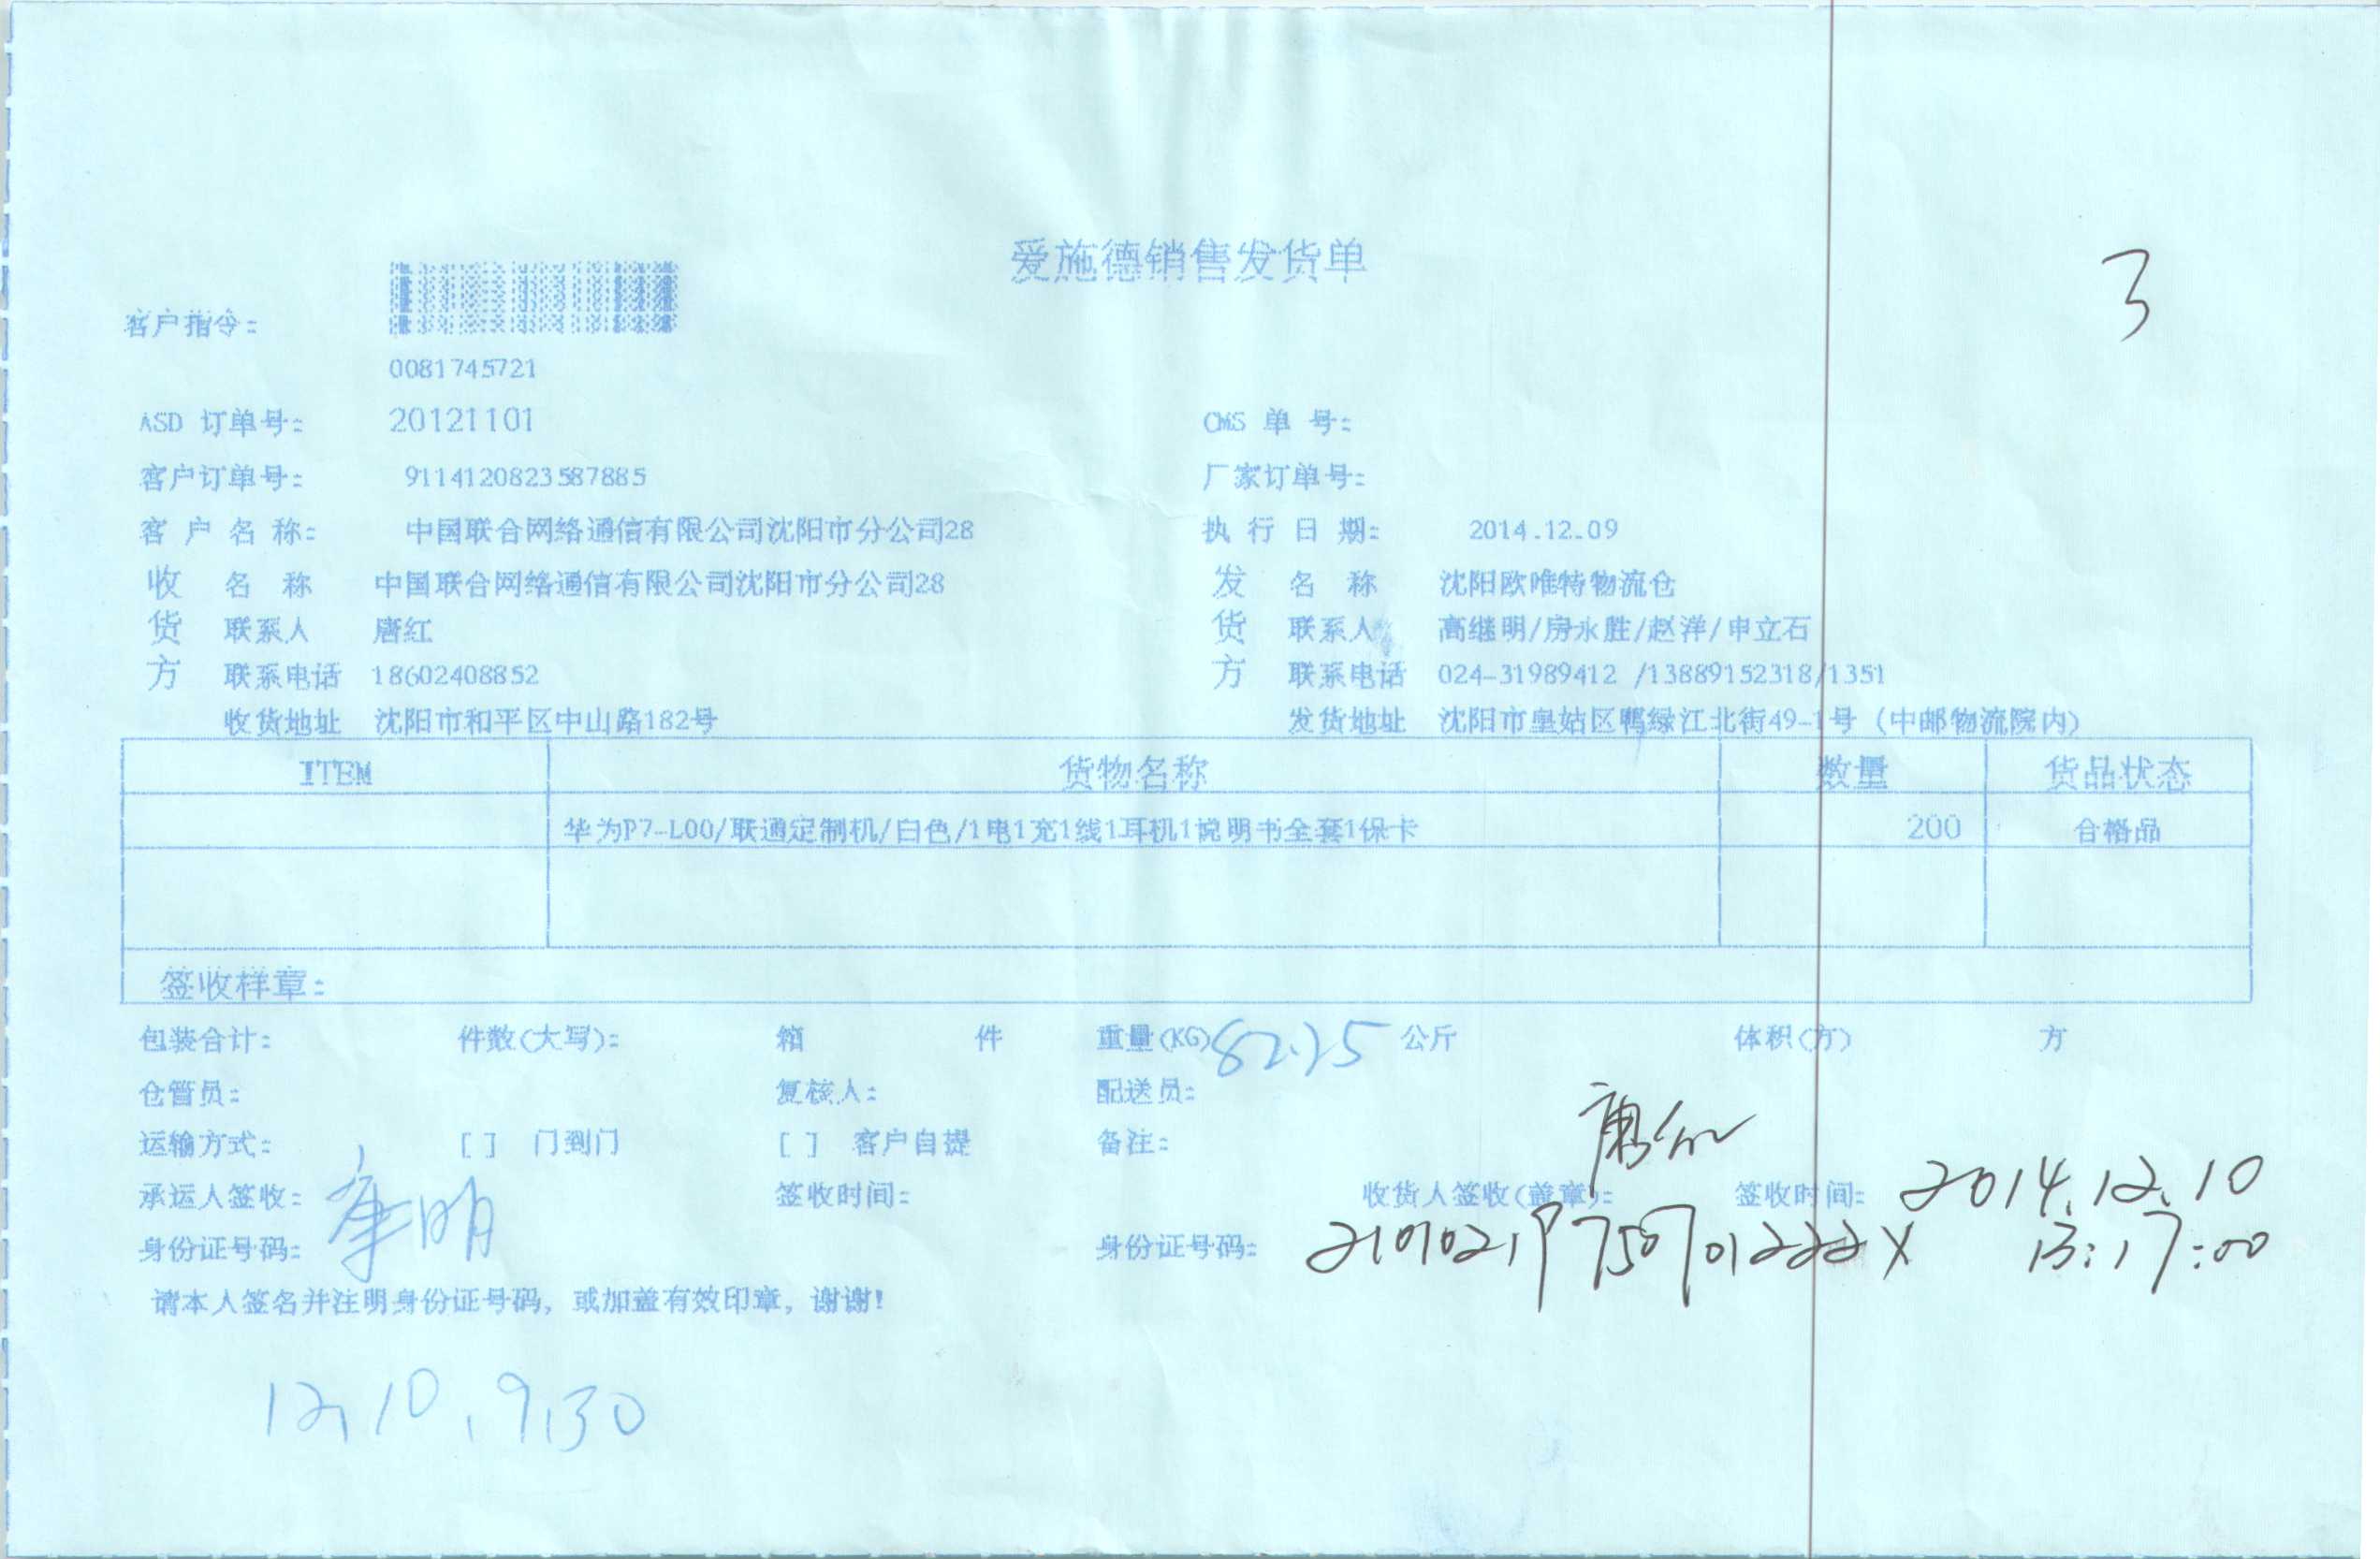 爱施德销售发货单
3
客户指令:
0081745721
ASD 订单号: 20121101 CMS 单 号:
客户订单号: 9114120823587885 厂家订单号:
客 户 名 称: 中国联合网络通信有限公司沈阳市分公司28 执 行 日 期: 2014.12.09
收 名 称 中国联合网络通信有限公司沈阳市分公司28 发 名 称 沈阳欧唯特物流仓
货 联系人 唐红 货 联系人 高继明/房永胜/赵洋/申立石
方 联系电话 18602408852 方 联系电话 024-31989412 /13889152318/1351
收货地址 沈阳市和平区中山路182号 发货地址 沈阳市皇姑区鸭绿江北街49-1号 (中邮物流院内)
ITEM 货物名称 数量 货品状态
华为P7-L00/联通定制机/白色/1电1充1线1耳机1说明书全套1保卡 200 合格品
签收样章:
包装合计: 件数(大写): 箱 件 重量(KG) 82.75 公斤 体积(方) 方
仓管员: 复核人: 配送员:
运输方式: [ ] 门到门 [ ] 客户自提 备注:
承运人签收: 签收时间: 收货人签收(盖章): 唐红 签收时间: 2014.12.10
身份证号码: 身份证号码: 13:17:00
请本人签名并注明身份证号码, 或加盖有效印章, 谢谢!
12,10,9,30